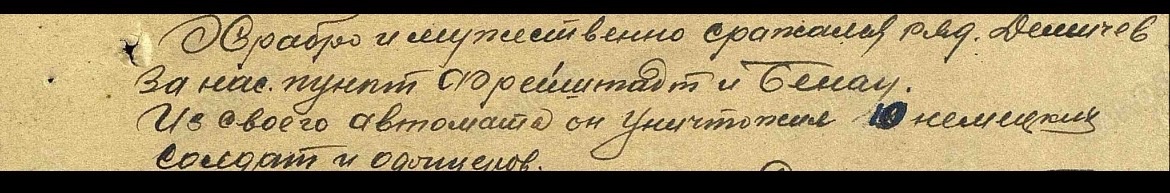 Храбро и мужественно сражался ряд. Демичев
за нас. пункт Фрейштадт и Бенау.
Из своего автомата он уничтожил 10 немецких
солдат и офицеров.